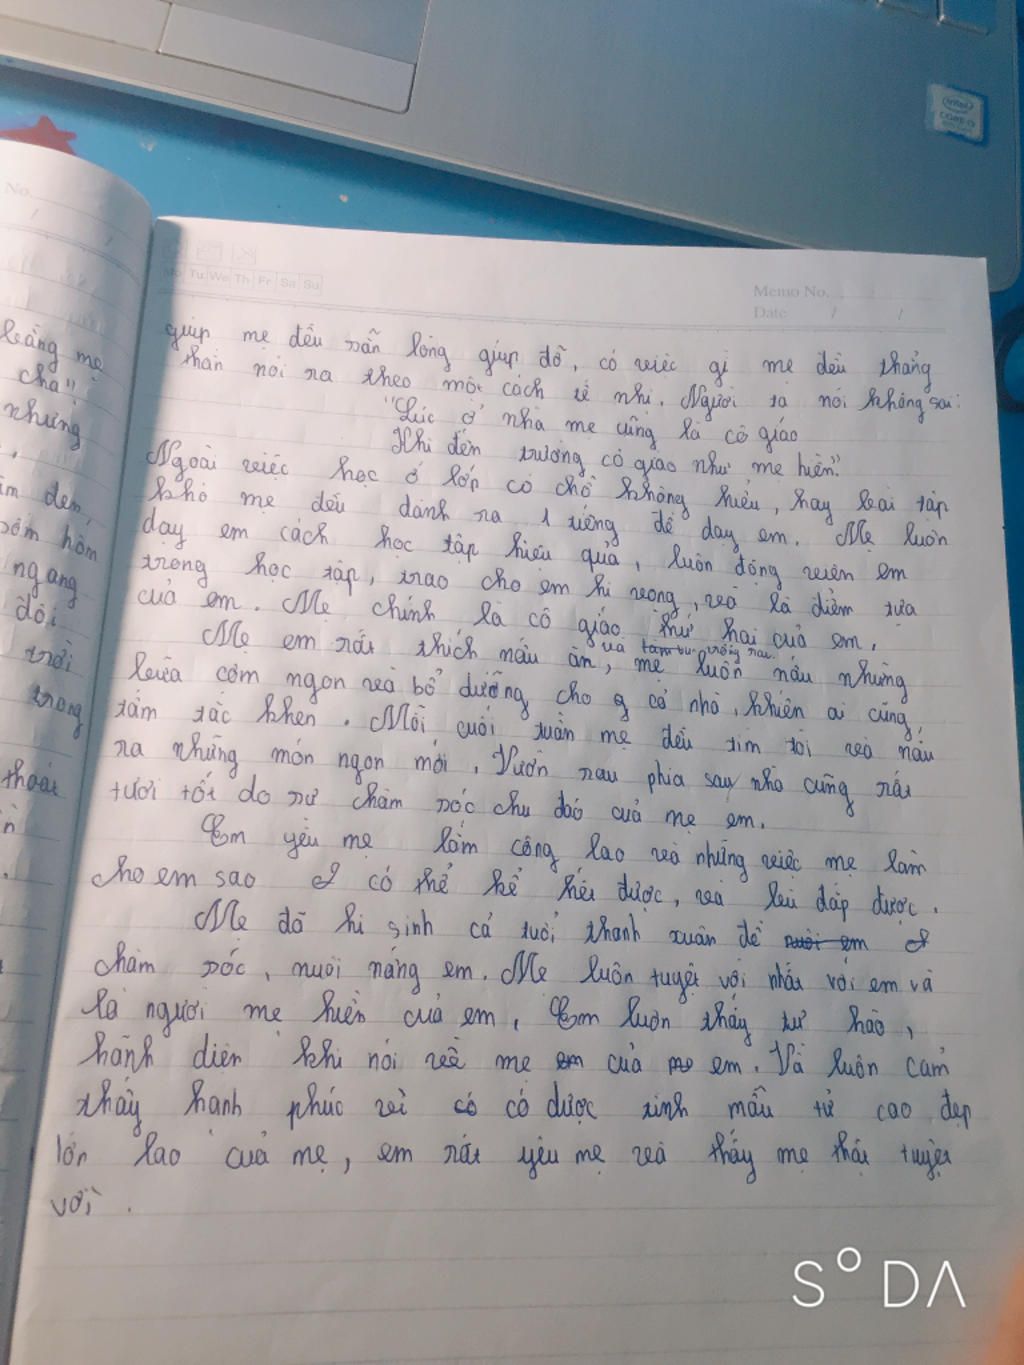 intel
CORE i3
No.
/
/
bằng mẹ
cha"
nhưng
đêm,
sớm hôm
ngang
đôi
trời
trong
thoải
Mo Tu We Th Fr Sa Su
Memo No.
Date / /
giúp mẹ đều sẵn lòng giúp đỡ, có việc gì mẹ đều thẳng
thắn nói ra theo một cách tế nhị. Người ta nói không sai:
"Lúc ở nhà mẹ cũng là cô giáo
Khi đến trường cô giáo như mẹ hiền."
Ngoài việc học ở lớp có chỗ không hiểu, hay bài tập
khó mẹ đều dành ra 1 tiếng để dạy em. Mẹ luôn
dạy em cách học tập hiệu quả, luôn động viên em
trong học tập, trao cho em hi vọng, và là điểm tựa
của em. Mẹ chính là cô giáo thứ hai của em.
và trồng rau
Mẹ em rất thích nấu ăn, mẹ luôn nấu những
bữa cơm ngon và bổ dưỡng cho cả nhà, khiến ai cũng
tấm tắc khen. Mỗi cuối tuần mẹ đều tìm tòi và nấu
ra những món ngon mới. Vườn rau phía sau nhà cũng rất
tươi tốt do sự chăm sóc chu đáo của mẹ em.
Em yêu mẹ lắm công lao và những việc mẹ làm
cho em sao có thể kể hết được, và bù đắp được.
Mẹ đã hi sinh cả tuổi thanh xuân để nuôi em
chăm sóc, nuôi nấng em. Mẹ luôn tuyệt vời nhất với em và
là người mẹ hiền của em. Em luôn thấy tự hào,
hãnh diện khi nói về mẹ em của mẹ em. Và luôn cảm
thấy hạnh phúc vì có có được tình mẫu tử cao đẹp
lớn lao của mẹ, em rất yêu mẹ và thấy mẹ thật tuyệt
vời.
SODA